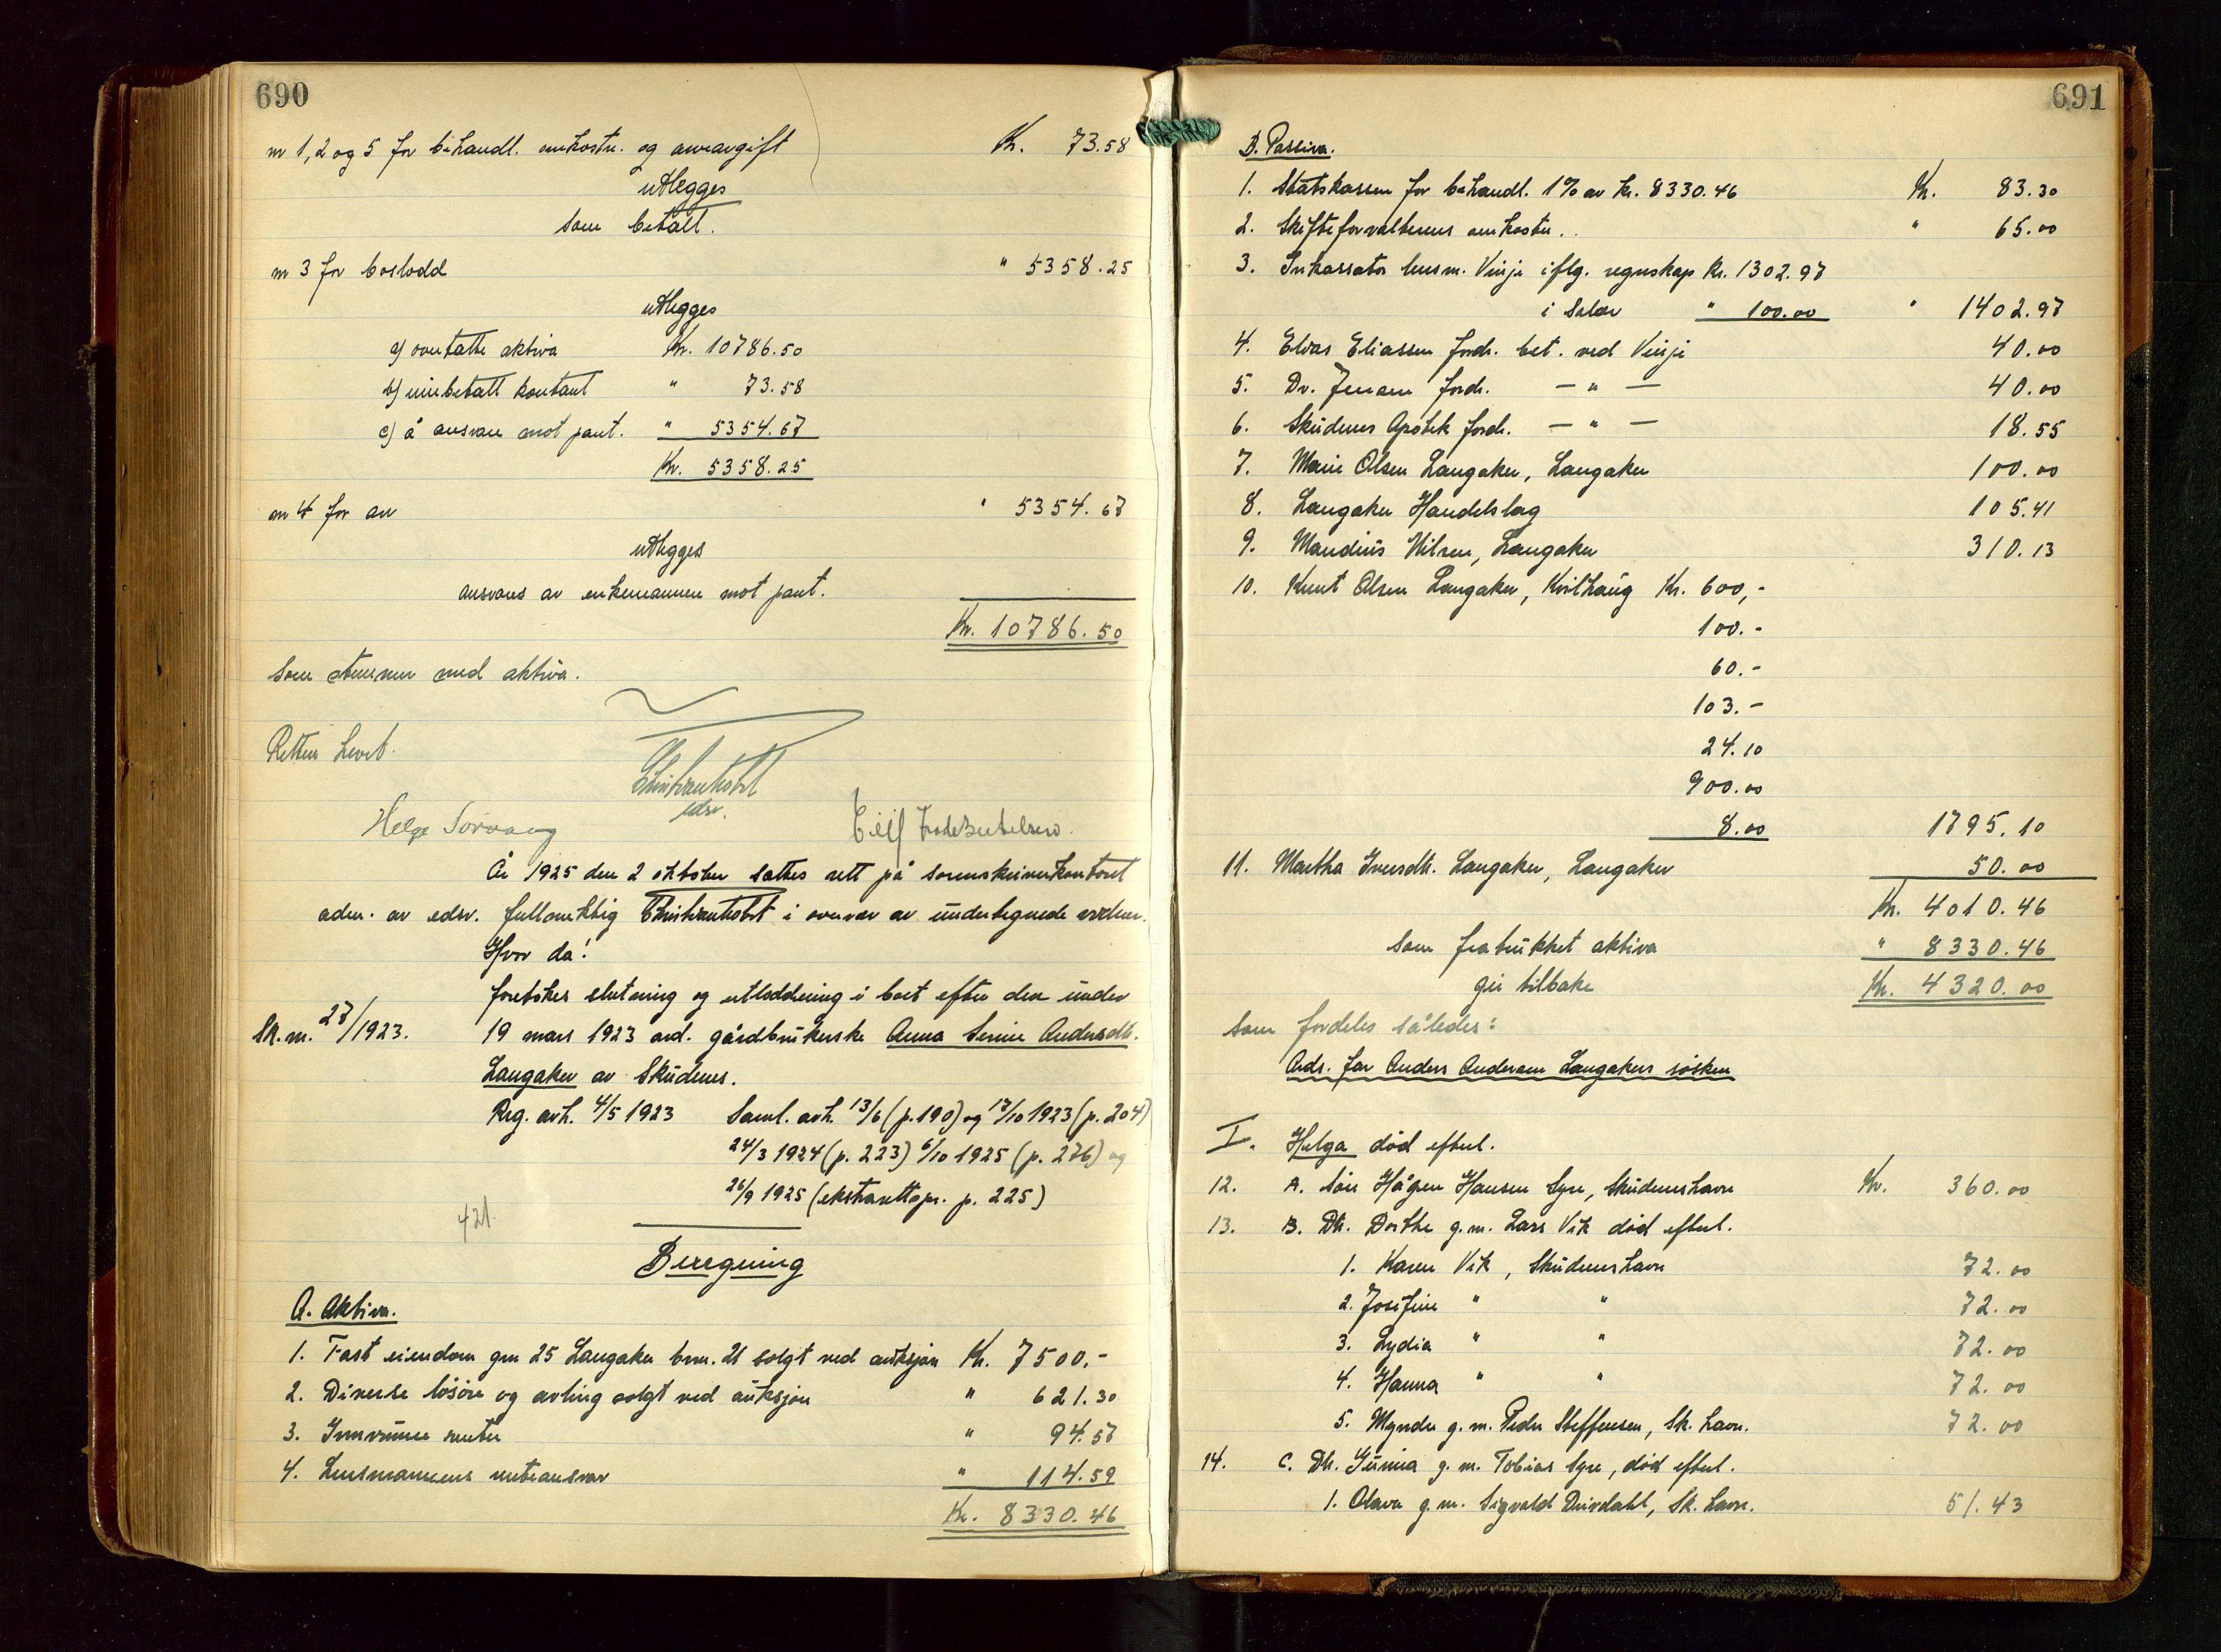 690
nr 1, 2 og 5 for behandl. omkostn. og arveavgift Kr. 73.58
utlegges
som betalt.
nr 3 for boslodd " 5358.25
utlegges
a) overtatte aktiva Kr. 10786.50
b) innbetalt kontant " 73.58
c) å ansvare mot pant. " 5354.67
Kr. 5358.25
nr 4 for arv " 5354.67
utlegges
ansvares av enkemannen mot pant.
Kr. 10786.50
som stemmer med aktiva.
Retten hevet.
edsv.
Helge Sørvaag
År 1925 den 2 oktober sattes rett på sorenskriverkontoret
adm. av edsv. fullmektig i overvær av undertegnede vidner.
Hvor da!
foretokes slutning og utloddning i boet efter den under
Sk. m. 27/1923. 19 mars 1923 avd. gårdbrukerske Anna Serine Andersdtr.
Langaker av Skudenes.
Reg. avh. 4/5 1923 Saml. avh. 13/6 (p. 190) og 17/10 1923 (p. 204)
24/3 1924 (p. 223) 6/10 1925 (p. 276) og
26/9 1925 (ekstrarettspr. p. 225)
421.
Beregning
A. Aktiva.
1. Fast eiendom gnr 25 Langaker bnr. 21 solgt ved auksjon Kr. 7500.-
2. Diverse løsøre og avling solgt ved auksjon " 621.30
3. Innvunne renter " 94.57
4. Lensmannens renteansvar " 114.59
Kr. 8330.46
691
B. Passiva.
1. Statskassen for behandl. 1% av kr. 8330.46 Kr. 83.30
2. Skifteforvalterens omkostn. . " 65.00
3. Inkassator lensm. Vinje iflg. regnskap kr. 1302.97
i salær " 100.00 " 1402.97
4. Elias Eliassen fordr. bet. ved Vinje 40.00
5. Dr. Jensen fordr. — " — 40.00
6. Skudenes Apotek fordr. — " — 18.55
7. Marie Olsen Langaker, Langaker 100.00
8. Langaker Handelslag 105.41
9. Mandius Nilsen, Langaker 310.13
10. Knut Olsen Langaker, Kvilhaug Kr. 600,-
100.-
60.-
103.-
24.10
900.00
8.00 1795.10
11. Martha Iversdtr. Langaker, Langaker 50.00
Kr. 4010.46
som fratrukket aktiva " 8330.46
gir tilbake Kr. 4320.00
som fordeles således:
Avds. far Anders Andersen Langakers søsken
I. Helga død efterl.
12. A. Søn Håg Hansen Syre, Skudeneshavn Kr. 360.00
13. B. Dtr. Dorthe g.m. Lars Vik død efterl.
1. Karen Vik, Skudeneshavn 72.00
2. Josefine " " 72.00
3. Lydia " " 72.00
4. Hanna " " 72.00
5. g.m. Peder Steffensen, Sk. havn. 72.00
14. C. Dtr. Gunnia g.m. Tobias Syre, død efterl.
1. Olava g.m. Sigvald Duvdahl, Sk. havn. 51.43